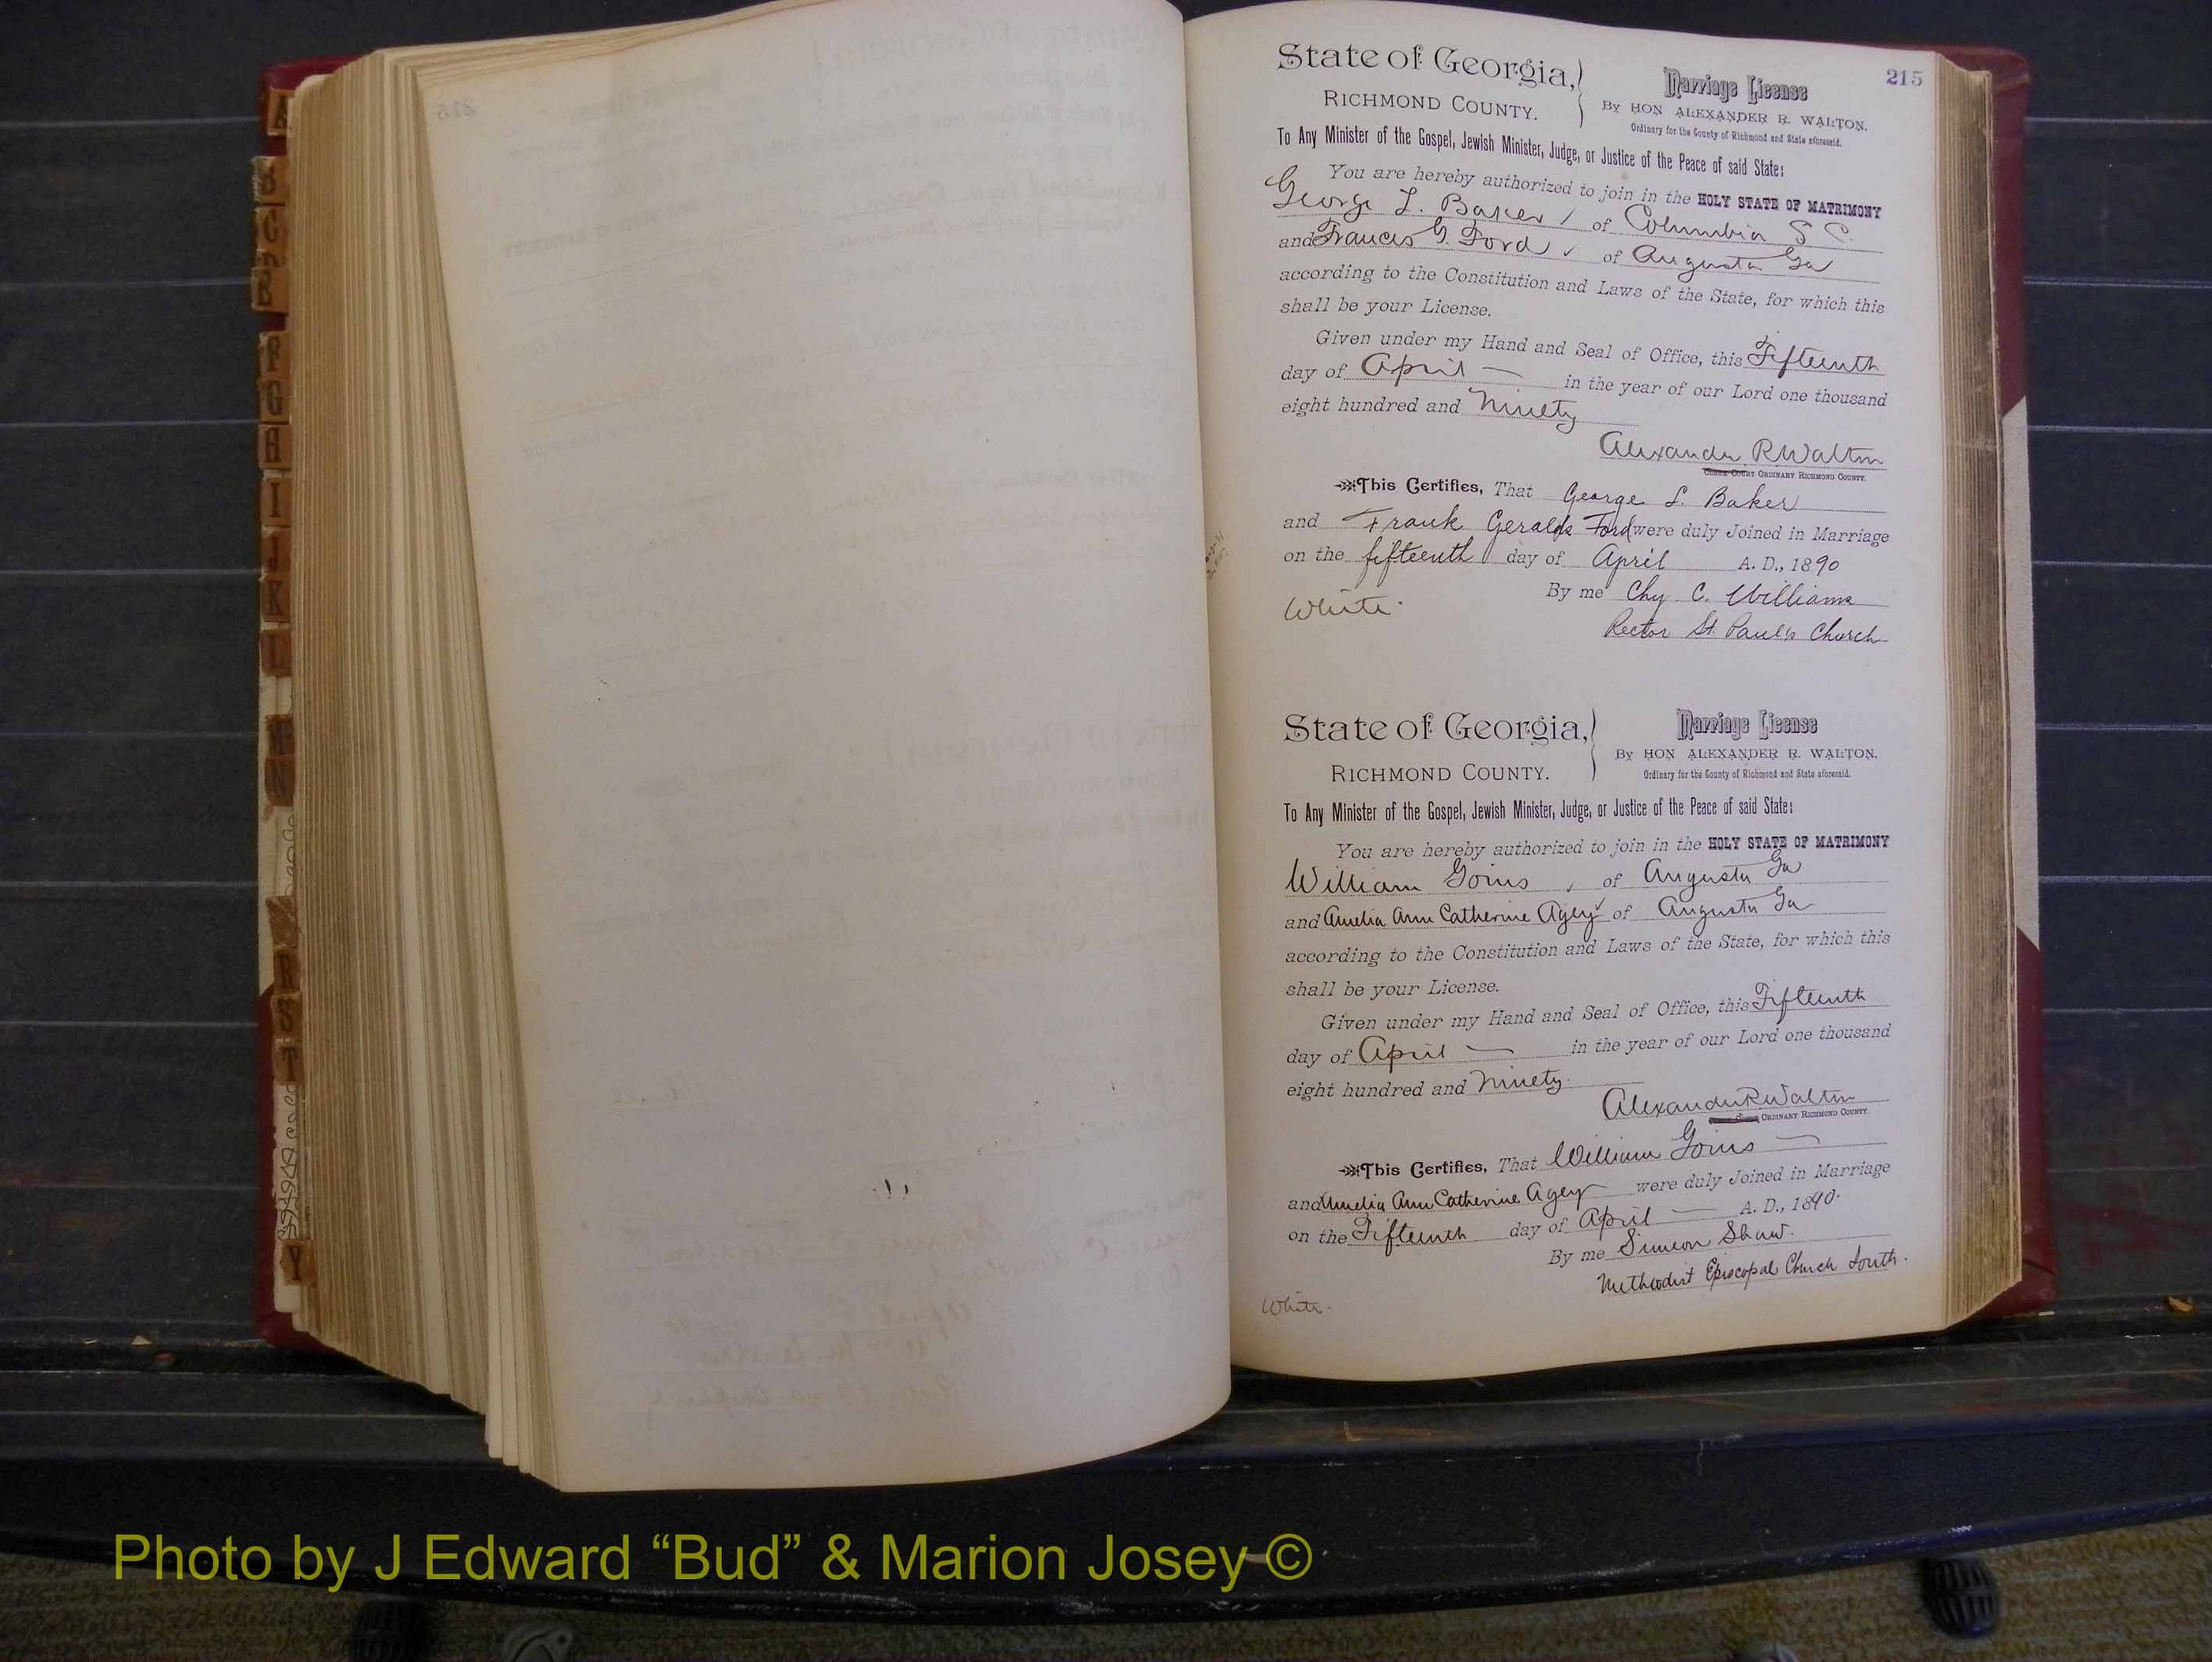 215
State of Georgia,
RICHMOND COUNTY.
Marriage License
BY HON ALEXANDER R. WALTON.
Ordinary for the County of Richmond and State aforesaid.
To Any Minister of the Gospel, Jewish Minister, Judge, or Justice of the Peace of said State:
You are hereby authorized to join in the HOLY STATE OF MATRIMONY
George L. Baker of Columbia S C.
and Frances G. Ford of Augusta Ga
according to the Constitution and Laws of the State, for which this
shall be your License.
Given under my Hand and Seal of Office, this Fifteenth
day of April in the year of our Lord one thousand
eight hundred and Ninety
Alexander R Walton
ORDINARY RICHMOND COUNTY.
This Certifies, That George L. Baker
and Frank Ford were duly Joined in Marriage
on the fifteenth day of April A. D., 1890
By me C. Williams
White.
Rector St. Paul's Church
State of Georgia,
RICHMOND COUNTY.
Marriage License
BY HON ALEXANDER R. WALTON.
Ordinary for the County of Richmond and State aforesaid.
To Any Minister of the Gospel, Jewish Minister, Judge, or Justice of the Peace of said State:
You are hereby authorized to join in the HOLY STATE OF MATRIMONY
William Goins of Augusta Ga
and Amelia Ann Catherine Agey of Augusta Ga
according to the Constitution and Laws of the State, for which this
shall be your License.
Given under my Hand and Seal of Office, this Fifteenth
day of April in the year of our Lord one thousand
eight hundred and Ninety.
Alexander R Walton
ORDINARY RICHMOND COUNTY.
This Certifies, That William Goins
and Amelia Ann Catherine Agey were duly Joined in Marriage
on the Fifteenth day of April A. D., 1890.
By me Simeon Shaw.
Methodist Episcopal Church South.
White.
Photo by J Edward “Bud” & Marion Josey ©